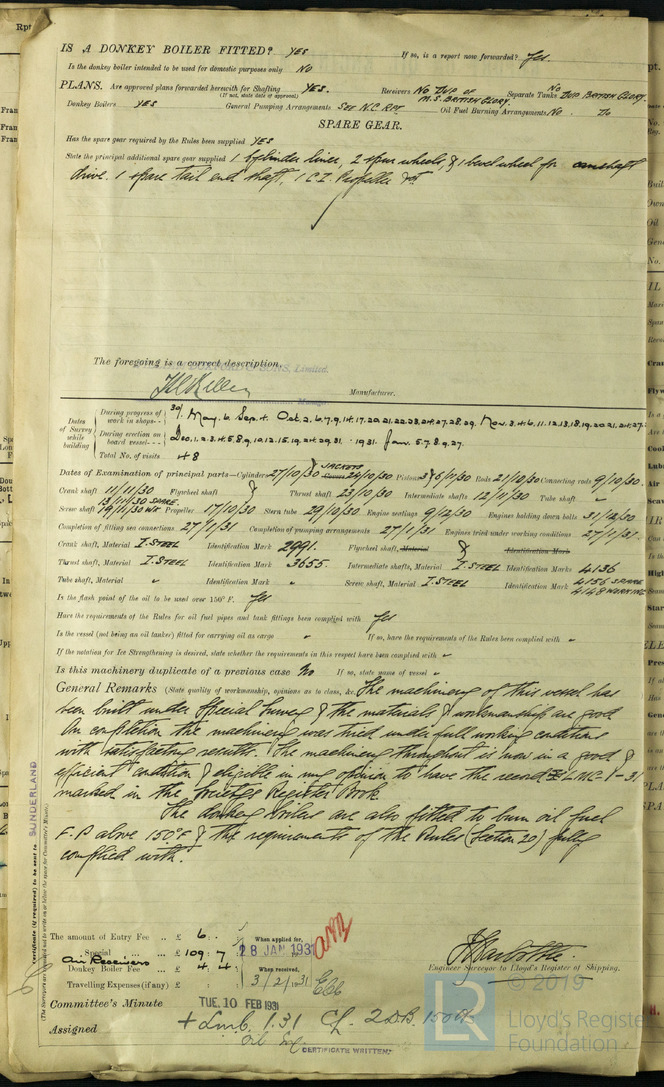 IS A DONKEY BOILER FITTED? YES If so, is a report now forwarded? Yes.
Is the donkey boiler intended to be used for domestic purposes only NO
PLANS. Are approved plans forwarded herewith for Shafting YES. Receivers NO DUP OF M.S. BRITISH GLORY. Separate Tanks NO DUP BRITISH GLORY.
(If not, state date of approval)
Donkey Boilers YES General Pumping Arrangements SEE N.C. RPT Oil Fuel Burning Arrangements NO. Do
SPARE GEAR.
Has the spare gear required by the Rules been supplied YES
State the principal additional spare gear supplied 1 cylinder liner, 2 spur wheels, & 1 bevel wheel for camshaft
drive. 1 spare tail end shaft, 1 C.I. Propeller
The foregoing is a correct description,
& SONS, Limited.
Manager
Manufacturer.
Dates of Survey while building
During progress of work in shops - - 30/. May. 6. Sep. 4. Oct. 2. 6. 7. 9. 14. 17. 20. 21. 22. 23. 24. 27. 28. 29. Nov. 3. 4. 6. 11. 12. 13. 18. 19. 20. 21. 24. 27.
During erection on board vessel - - - Dec. 1. 2. 3. 4. 5. 8. 9. 10. 12. 15. 19. 24. 29. 31. 1931. Jan. 5. 7. 8. 9. 27.
Total No. of visits 48
Dates of Examination of principal parts—Cylinders 27/10/30 JACKETS Covers 24/10/30 Pistons 5/11/30 Rods 21/10/30 Connecting rods 9/10/30.
Crank shaft 11/11/30 Flywheel shaft Thrust shaft 23/10/30 Intermediate shafts 12/11/30 Tube shaft "
13/11/30 SPARE.
Screw shaft 19/11/30 WK Propeller 17/10/30 Stern tube 29/10/30 Engine seatings 9/12/30 Engines holding down bolts 31/12/30
Completion of fitting sea connections 27/1/31 Completion of pumping arrangements 27/1/31 Engines tried under working conditions 27/1/31.
Crank shaft, Material I. STEEL Identification Mark 2991. Flywheel shaft, Material Identification Mark
Thrust shaft, Material I. STEEL Identification Mark 3655. Intermediate shafts, Material I. STEEL Identification Marks 4136
Tube shaft, Material " Identification Mark " Screw shaft, Material I. STEEL Identification Mark 4156 SPARE
4148 WORKING
Is the flash point of the oil to be used over 150° F. Yes
Have the requirements of the Rules for oil fuel pipes and tank fittings been complied with Yes
Is the vessel (not being an oil tanker) fitted for carrying oil as cargo " If so, have the requirements of the Rules been complied with "
If the notation for Ice Strengthening is desired, state whether the requirements in this respect have been complied with "
Is this machinery duplicate of a previous case No If so, state name of vessel "
General Remarks (State quality of workmanship, opinions as to class, &c. The machinery of this vessel has
been built under Special Survey & the materials & workmanship are good
On completion the machinery was tried under full working conditions
with satisfactory results. The machinery throughout is now in a good &
efficient condition & eligible in my opinion to have the record + LMC 1-31
marked in the Register Book
The donkey boilers are also fitted to burn oil fuel
F.P above 150°F & the requirements of the Rules (Section 20) fully
complied with.
Certificate (if required) to be sent to SUNDERLAND
(The Surveyors are requested not to write on or below the space for Committee's Minute.)
The amount of Entry Fee .. £ 6 . . When applied for,
Special .. £ 109 . 7 28 JAN 1931
Air Receivers
Donkey Boiler Fee .. £ 4 . 4 When received,
Travelling Expenses (if any) £ : : 3/2/1931
Engineer Surveyor to Lloyd's Register of Shipping.
Committee's Minute TUE. 10 FEB 1931
Assigned + Lmc. 1.31 CL 2 D.B. 150 lb
Oil Eng
CERTIFICATE WRITTEN.
© 2019
Lloyd's Register
Foundation